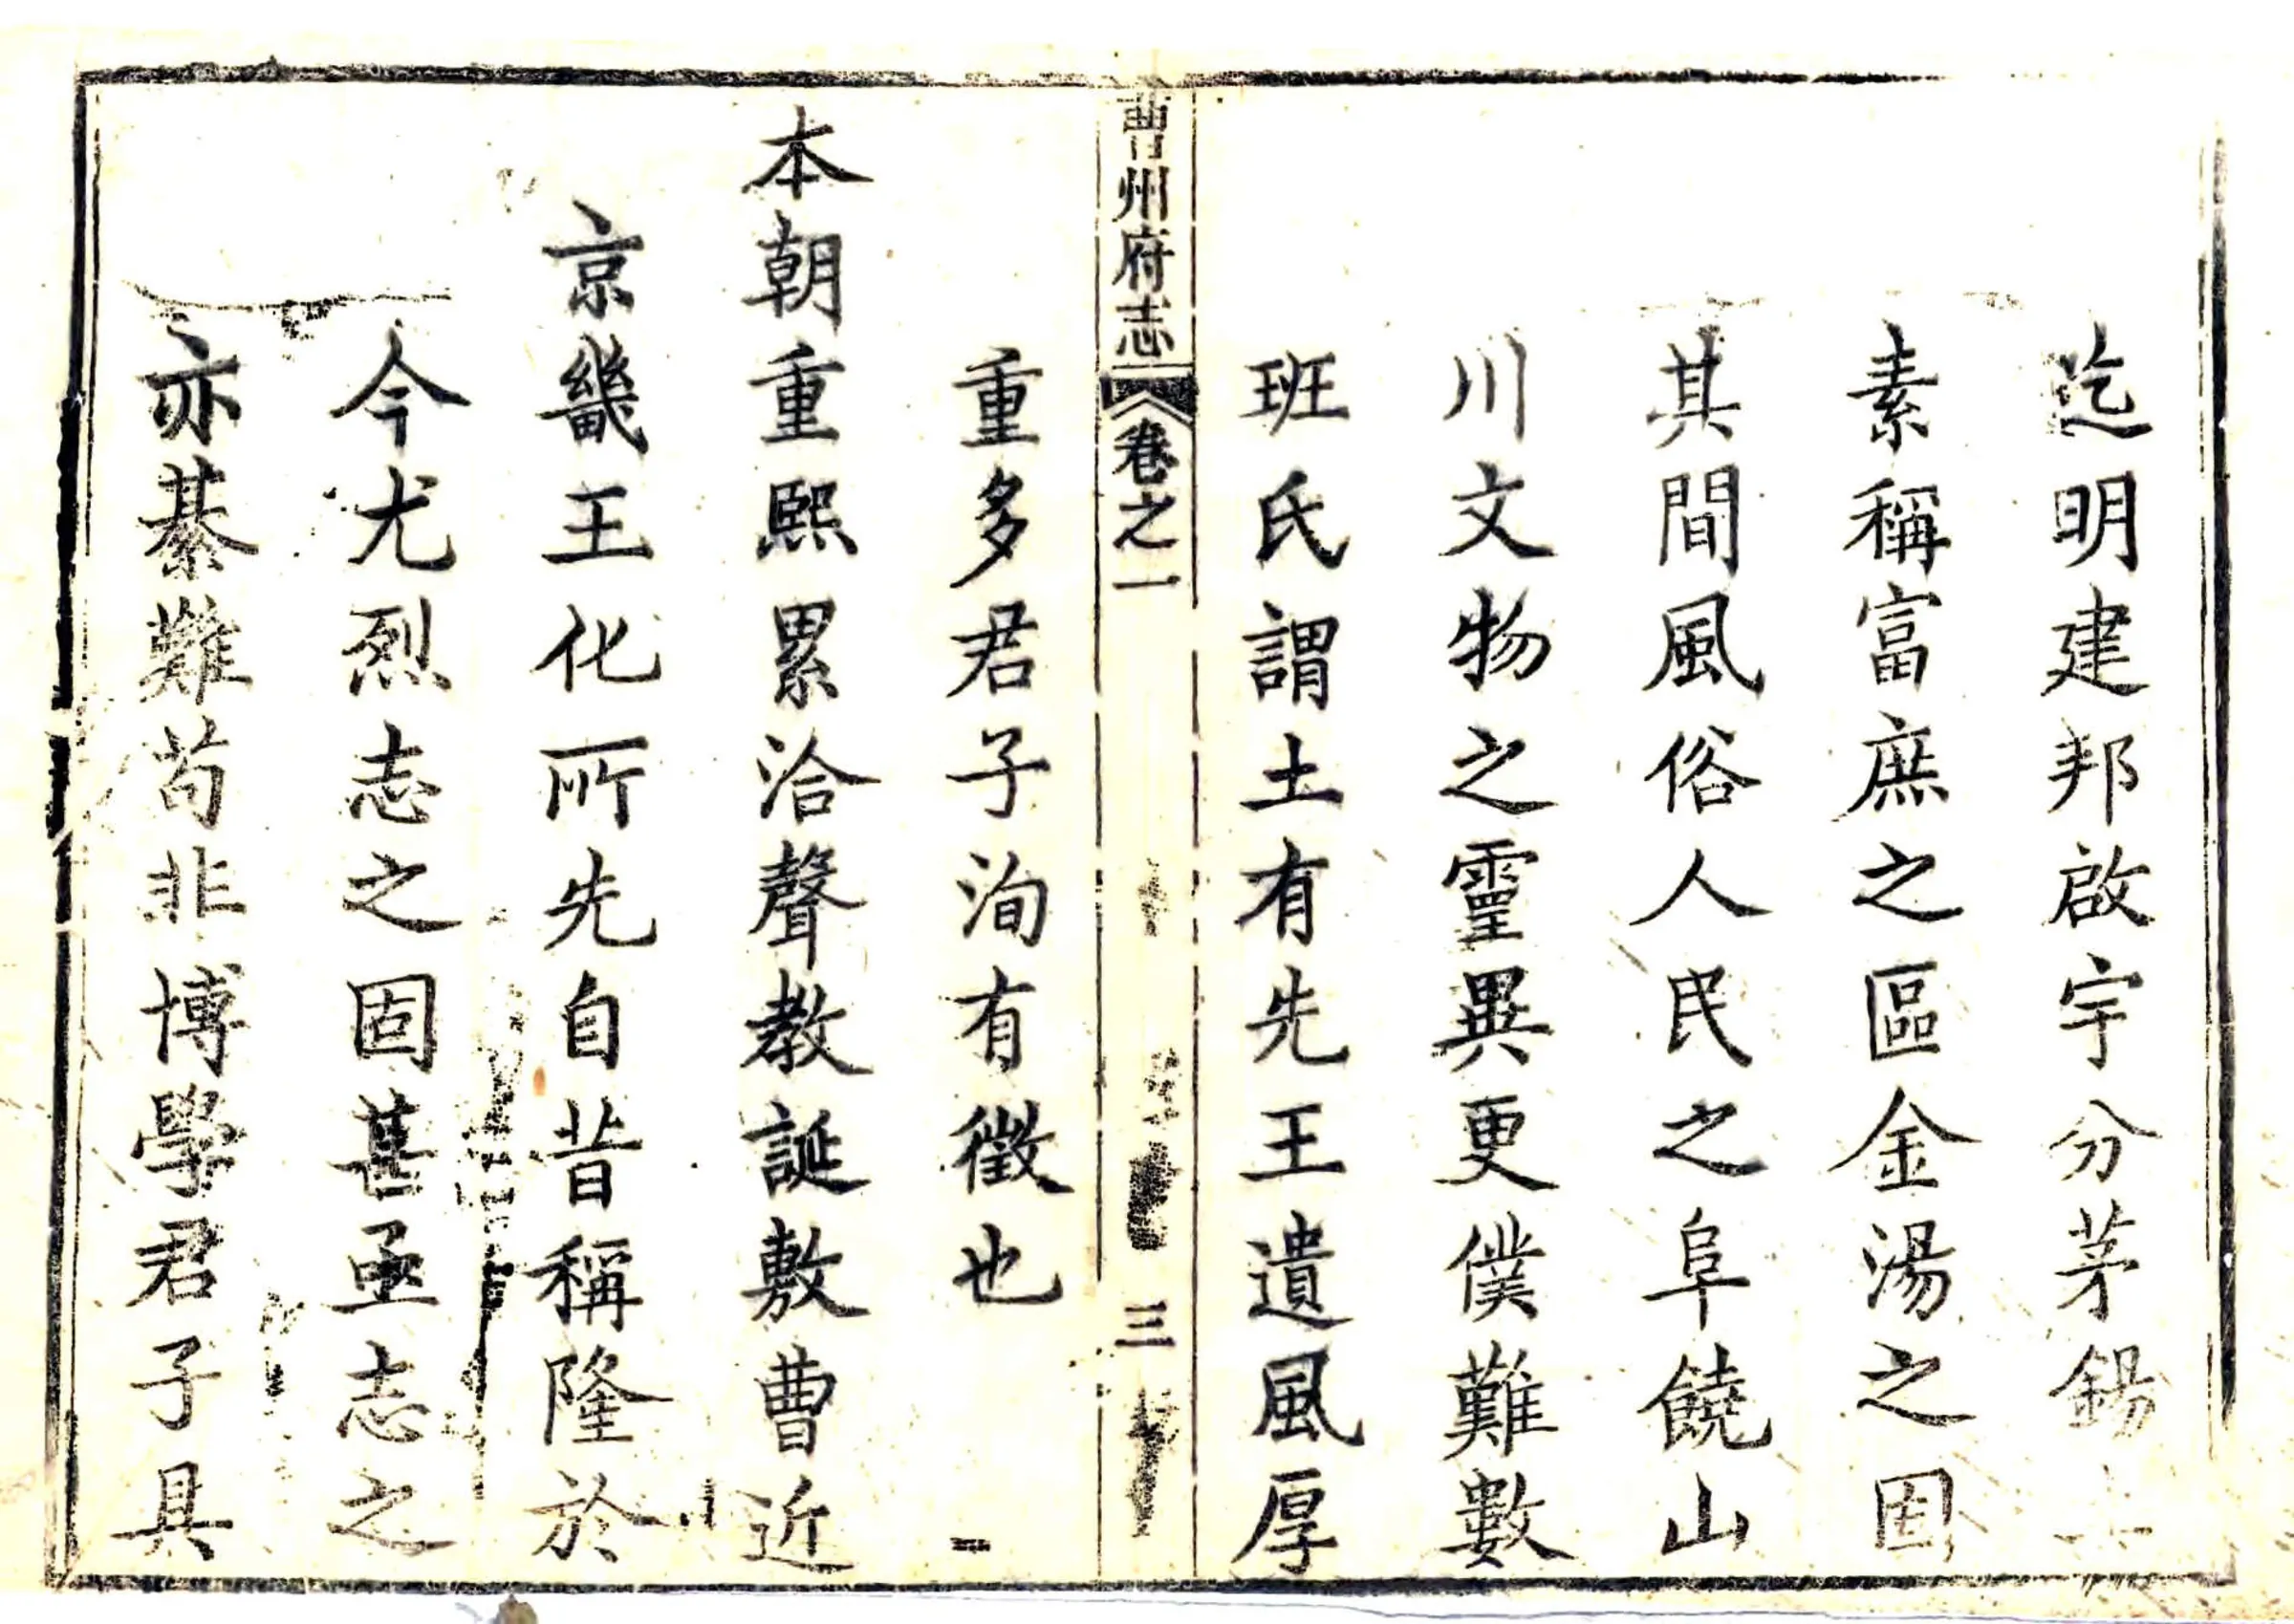 迄明建邦啟宇分茅錫土
素稱富庶之區金湯之固
其間風俗人民之阜饒山
川文物之靈異更僕難數
班氏謂土有先王遺風厚
曹州府志 卷之一 三
重多君子洵有徵也
本朝重熙累洽聲教誕敷曹近
京畿王化所先自昔稱隆於
今尤烈志之固甚亟志之
亦綦難苟非博學君子具